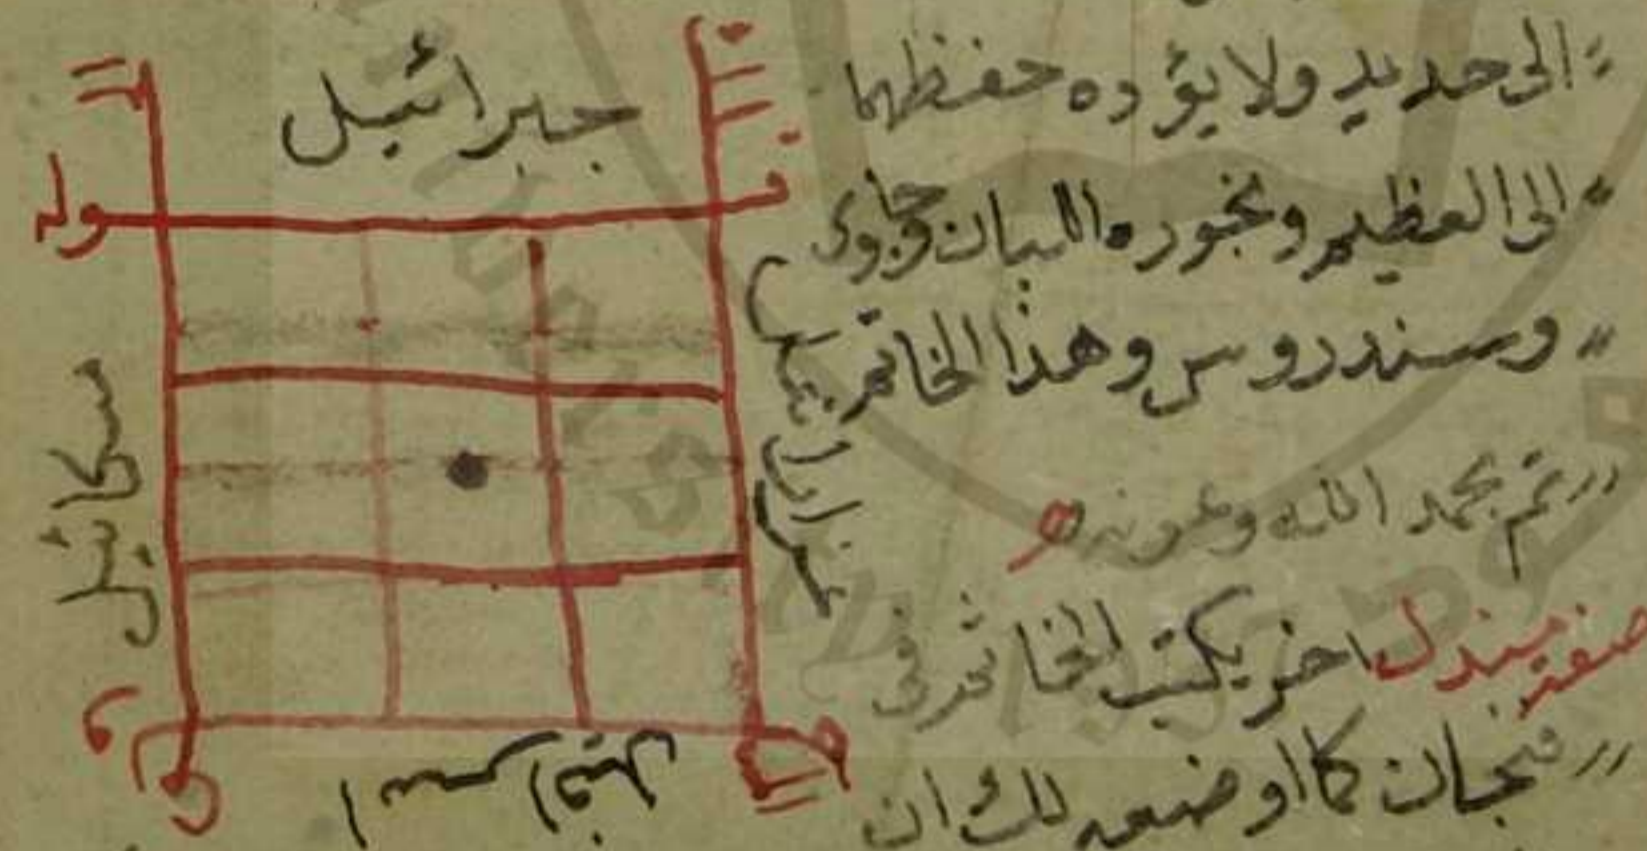 الى حديد ولا يؤده حفظهما
الى العظيم وبخوره اللبان جاوى
وسندروس وهذا الخاتم
تم بحمد الله وعونه
صفة مندل اخر يكتب الخاتم فى
فنجان كما اوضعه لك ان
جبرائيل
قوله
ميكائيل
اسرافيل